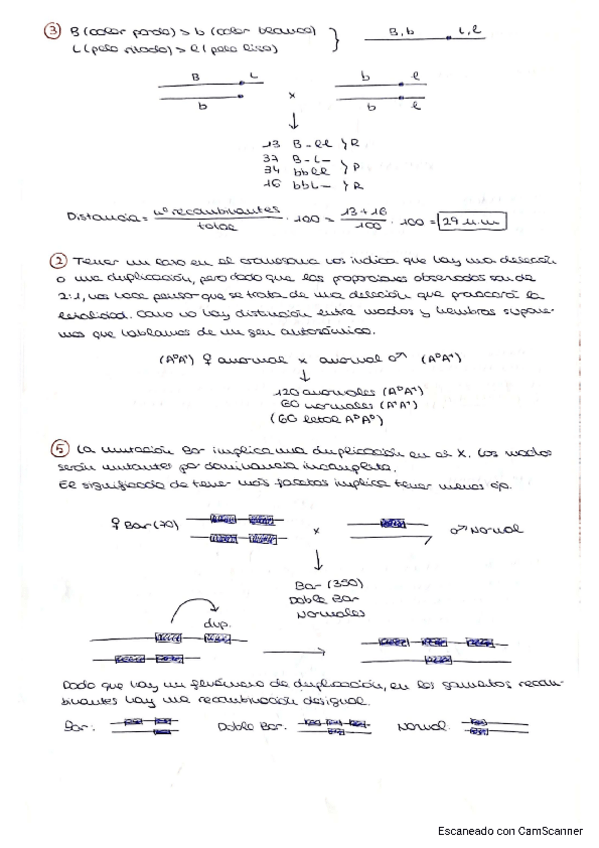 ③ B (color pardo) > b (color blanco) B,b L,l
L (pelo rizado) > l (pelo liso)
B L b l
x
b b l
13 B-ll } R
37 B-L- } P
34 bbll
16 bbL- } R
Distancia = nº recombinantes / total · 100 = 13+16 / 100 · 100 = 29 u.m
② Tener un lazo en el cromosoma nos indica que hay una deleción
o una duplicación, pero dado que las proporciones observadas son de
2:1, nos hace pensar que se trata de una deleción que provocará la
letalidad. Como no hay distinción entre machos y hembras supone-
mos que hablamos de un gen autosómico.
(A⁰A⁺) ♀ anormal x anormal ♂ (A⁰A⁺)
120 anormales (A⁰A⁺)
60 normales (A⁺A⁺)
(60 letal A⁰A⁰)
⑤ La mutación Bar implica una duplicación en el X. Los machos
serán mutantes por dominancia incompleta.
El significado de tener más facetas implica tener menos ojo.
♀ Bar (70) x ♂ Normal
Bar (350)
Doble Bar
Normales
dup.
Dado que hay un fenómeno de duplicación, en los gametos recom-
binantes hay una recombinación desigual.
Bar: Doble Bar: Normal:
Escaneado con CamScanner